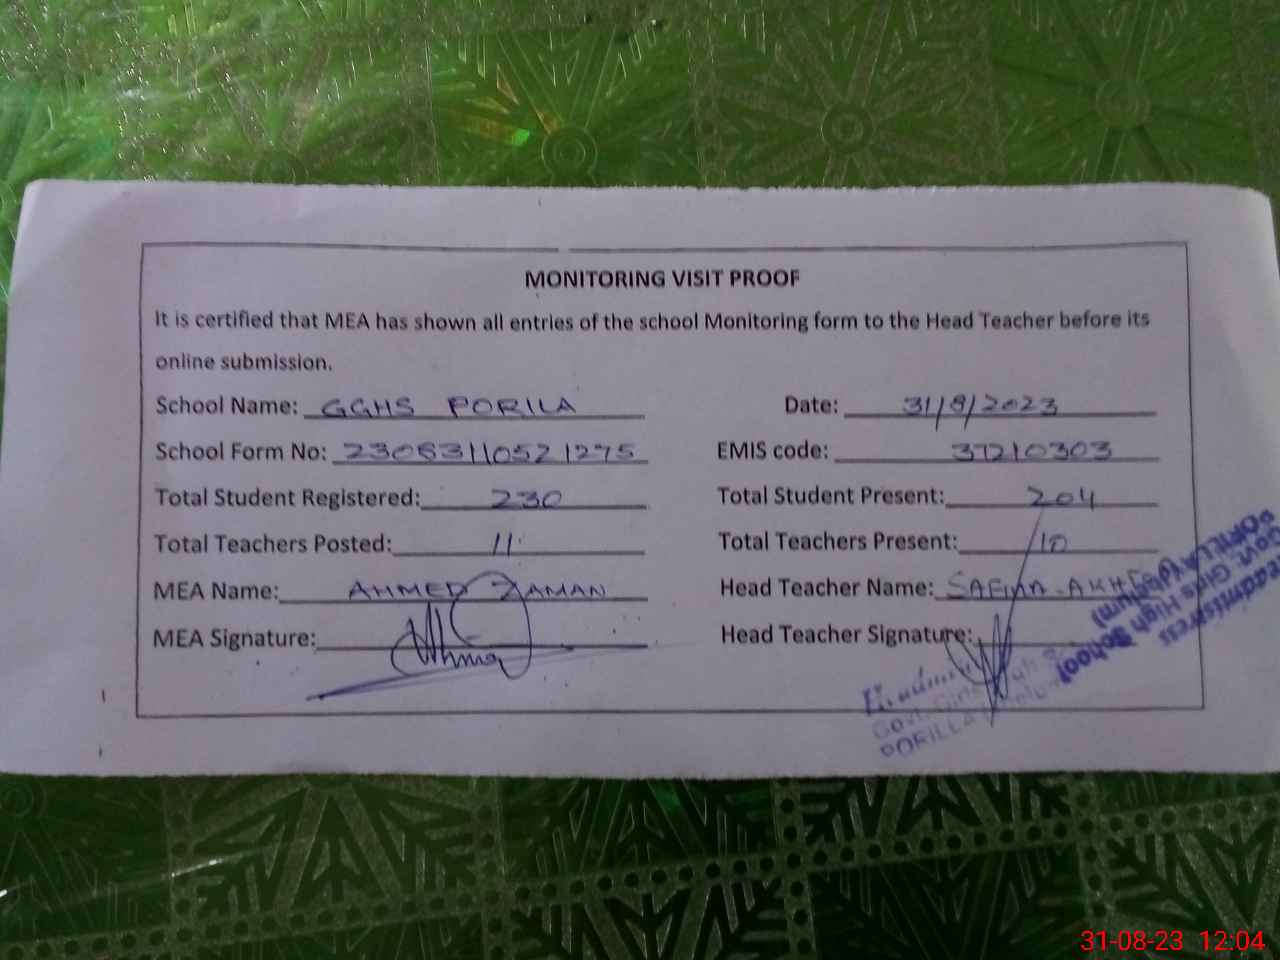 MONITORING VISIT PROOF
It is certified that MEA has shown all entries of the school Monitoring form to the Head Teacher before its
online submission.
School Name: GGHS PORILA Date: 31/8/2023
School Form No: 23083110521275 EMIS code: 37210303
Total Student Registered: 230 Total Student Present: 204
Total Teachers Posted: 11 Total Teachers Present: 10
MEA Name: AHMED ZAMAN Head Teacher Name: SAFINA AKHTAR
MEA Signature: Head Teacher Signature:
Headmistress
Govt. Girls High School
PORILLA
Govt. Girls High School
PORILLA
31-08-23 12:04